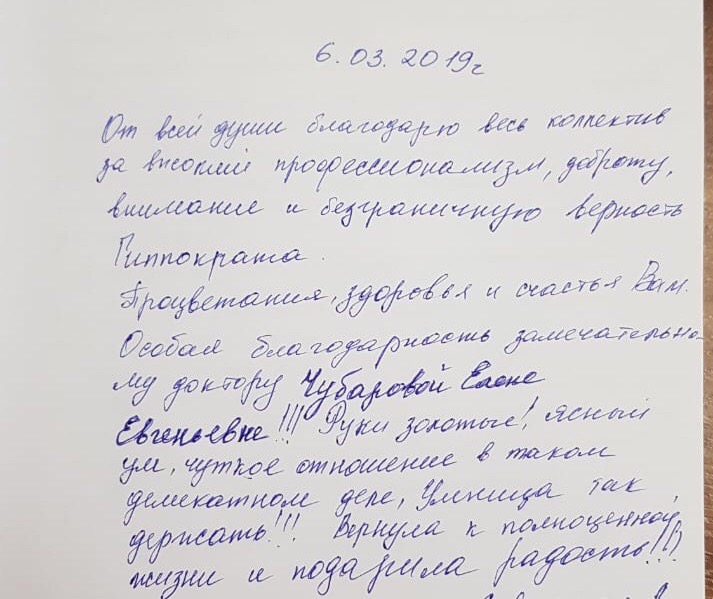 6. 03. 2019г
От всей души благодарю весь коллектив
за высокий профессионализм, доброту,
внимание и безграничную верность
Гиппократа.
Процветания, здоровья и счастья Вам.
Особая благодарность замечательно-
му доктору Чубаровой Елене
Евгеньевне!!! Руки золотые! Ясный
ум, чуткое отношение в таком
деликатном деле, Умница так
держать!!! Вернула к полноценной
жизни и подарила радость!!!